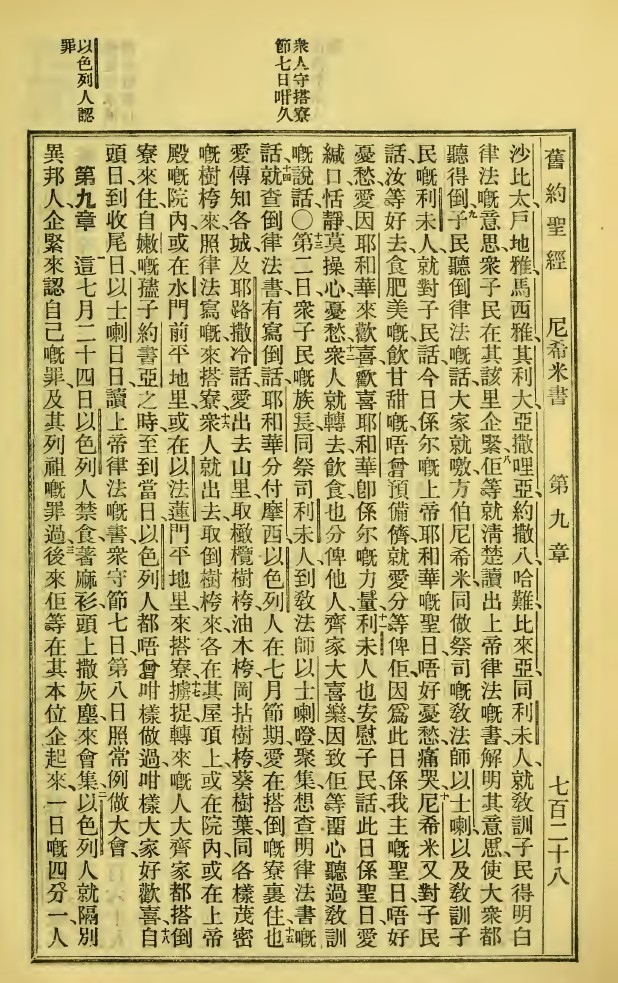 舊約聖經　尼希米書　第九章　七百二十八
沙比太戶地雅馬西雅其利大亞撒哩亞約撒八哈難比來亞同利未人就教訓子民得明白
律法嘅意思衆子民在其該里企緊八佢等就淸楚讀出上帝律法嘅書解明其意思使大衆都
聽得倒九子民聽倒律法嘅話大家就噭方伯尼希米同做祭司嘅教法師以士喇以及教訓子
民嘅利未人就對子民話今日係尔嘅上帝耶和華嘅聖日唔好憂愁痛哭十尼希米又對子民
話汝等好去食肥美嘅飲甘甜嘅唔曾預備儕就愛分等俾佢因爲此日係我主嘅聖日唔好
憂愁愛因耶和華來歡喜歡喜耶和華卽係尔嘅力量十一利未人也安慰子民話此日係聖日愛
緘口恬靜莫操心憂愁十二衆人就轉去飲食也分俾他人齊家大喜樂因致佢等畱心聽過教訓
嘅說話〇十三第二日衆子民嘅族長同祭司利未人到教法師以士喇嗜聚集想查明律法書嘅
話十四就查倒律法書有寫倒話耶和華分付摩西以色列人在七月節期愛在搭倒嘅寮裏住十五也
愛傳知各城及耶路撒冷話愛出去山里取橄欖樹桍油木桍岡拈樹桍葵樹葉同各樣茂密
嘅樹桍來照律法寫嘅來搭寮十六衆人就出去取倒樹桍來各在其屋頂上或在院內或在上帝
殿嘅院內或在水門前平地里或在以法蓮門平地里來搭寮十七擄捉轉來嘅人大齊家都搭倒
寮來住自嫩嘅𤘅子約書亞之時至到當日以色列人都唔曾咁樣做過咁樣大家好歡喜十八自
頭日到收尾日以士喇日日讀上帝律法嘅書衆守節七日第八日照常例做大會
第九章　一這七月二十四日以色列人禁食著麻衫頭上撒灰塵來會集二以色列人就隔別
異邦人企緊來認自己嘅罪及其列祖嘅罪過三後來佢等在其本位企起來一日嘅四分一人
衆人守搭寮
節七日咁久
以色列人認
罪